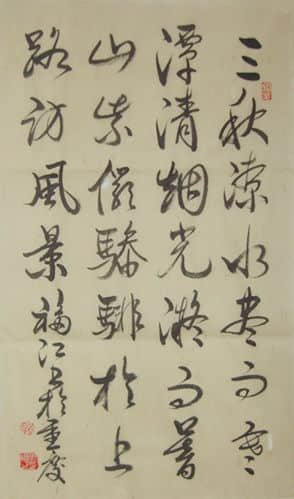 三秋潦水尽而寒
潭清烟光凝而暮
山紫儼驂騑於上
路访風景福江书於重庆